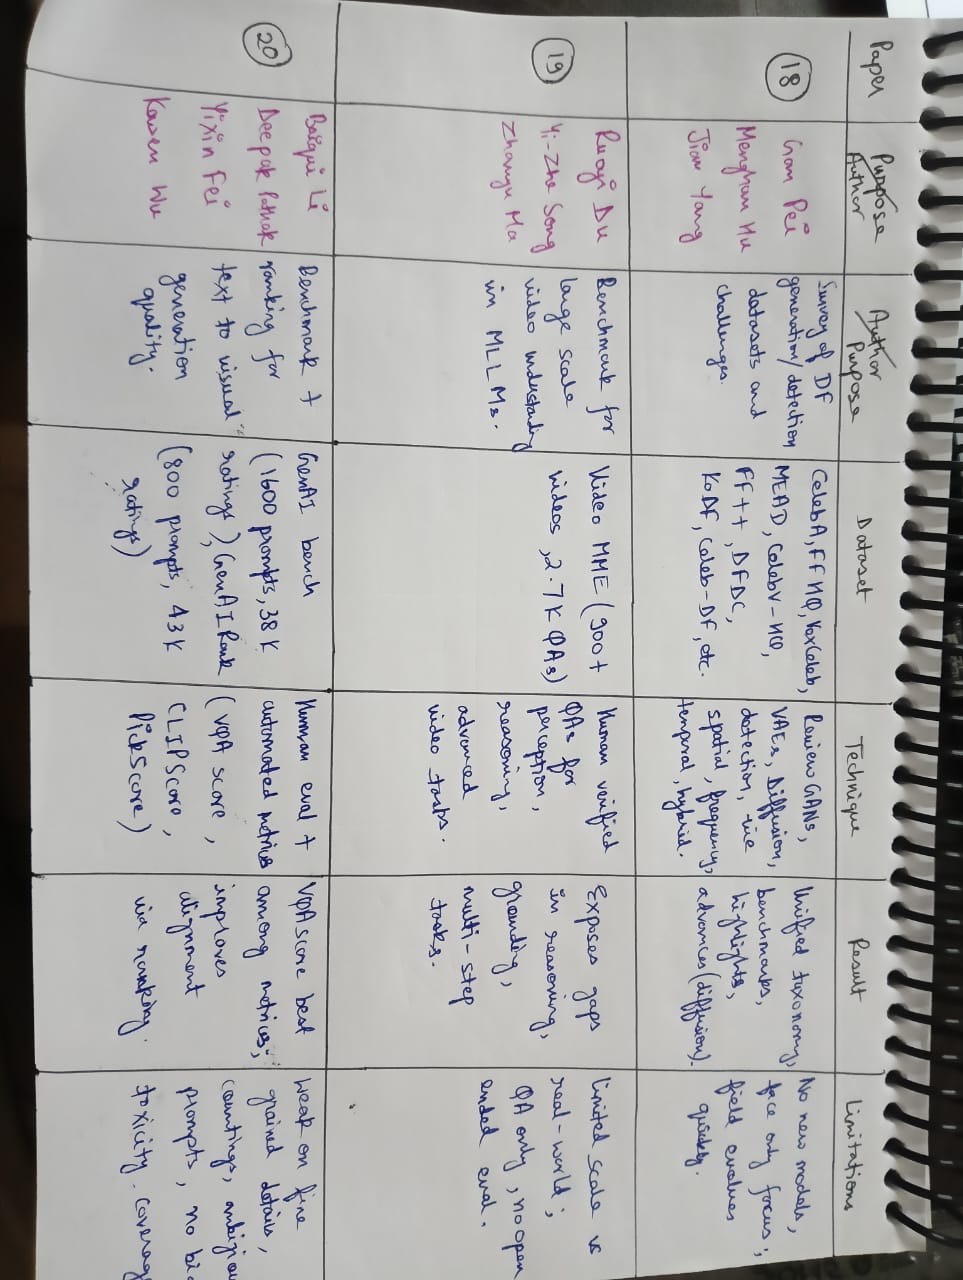 Paper
Purpose
Author
Author
Purpose
Dataset
Technique
Result
Limitations
18
Gan Pei
Menghan Hu
Jian Yang
Survey of DF
generation/detection
datasets and
challenges.
CelebA, FFHQ, VoxCeleb,
MEAD, CelebV-HQ,
FF++, DFDC,
KoDF, Celeb-DF, etc.
Review GANs,
VAEs, Diffusion,
detection, via
spatial, frequency,
temporal, hybrid.
Unified taxonomy,
benchmarks,
highlights,
advances (diffusion).
No new models,
face only focus;
field evolves
quickly.
19
Ruoyi Du
Yi-Zhe Song
Zhanyu Ma
Benchmark for
large scale
video understanding
in MLLMs.
Video MME (900+
videos, 2.7K QAs)
Human verified
QAs for
perception,
reasoning,
advanced
video tasks.
Exposes gaps
in reasoning,
grounding,
multi-step
tasks.
Limited scale vs
real-world;
QA only, no open
ended eval.
20
Baiqi Li
Deepak Pathak
Yixin Fei
Kewen Wu
Benchmark +
ranking for
text to visual
generation
quality.
GenAI bench
(1600 prompts, 38K
ratings), GenAI Rank
(800 prompts, 43K
ratings)
Human eval +
automated metrics
(VQA score,
CLIPScore,
PickScore)
VQAscore best
among metrics;
improves
alignment
via ranking.
Weak on fine
grained details,
countings,
prompts, no
toxicity coverage